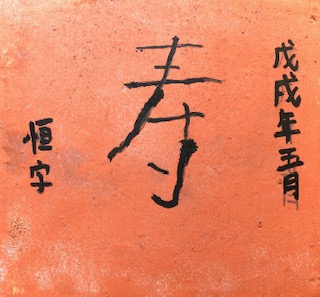 戊戌年五月
寿
恒字